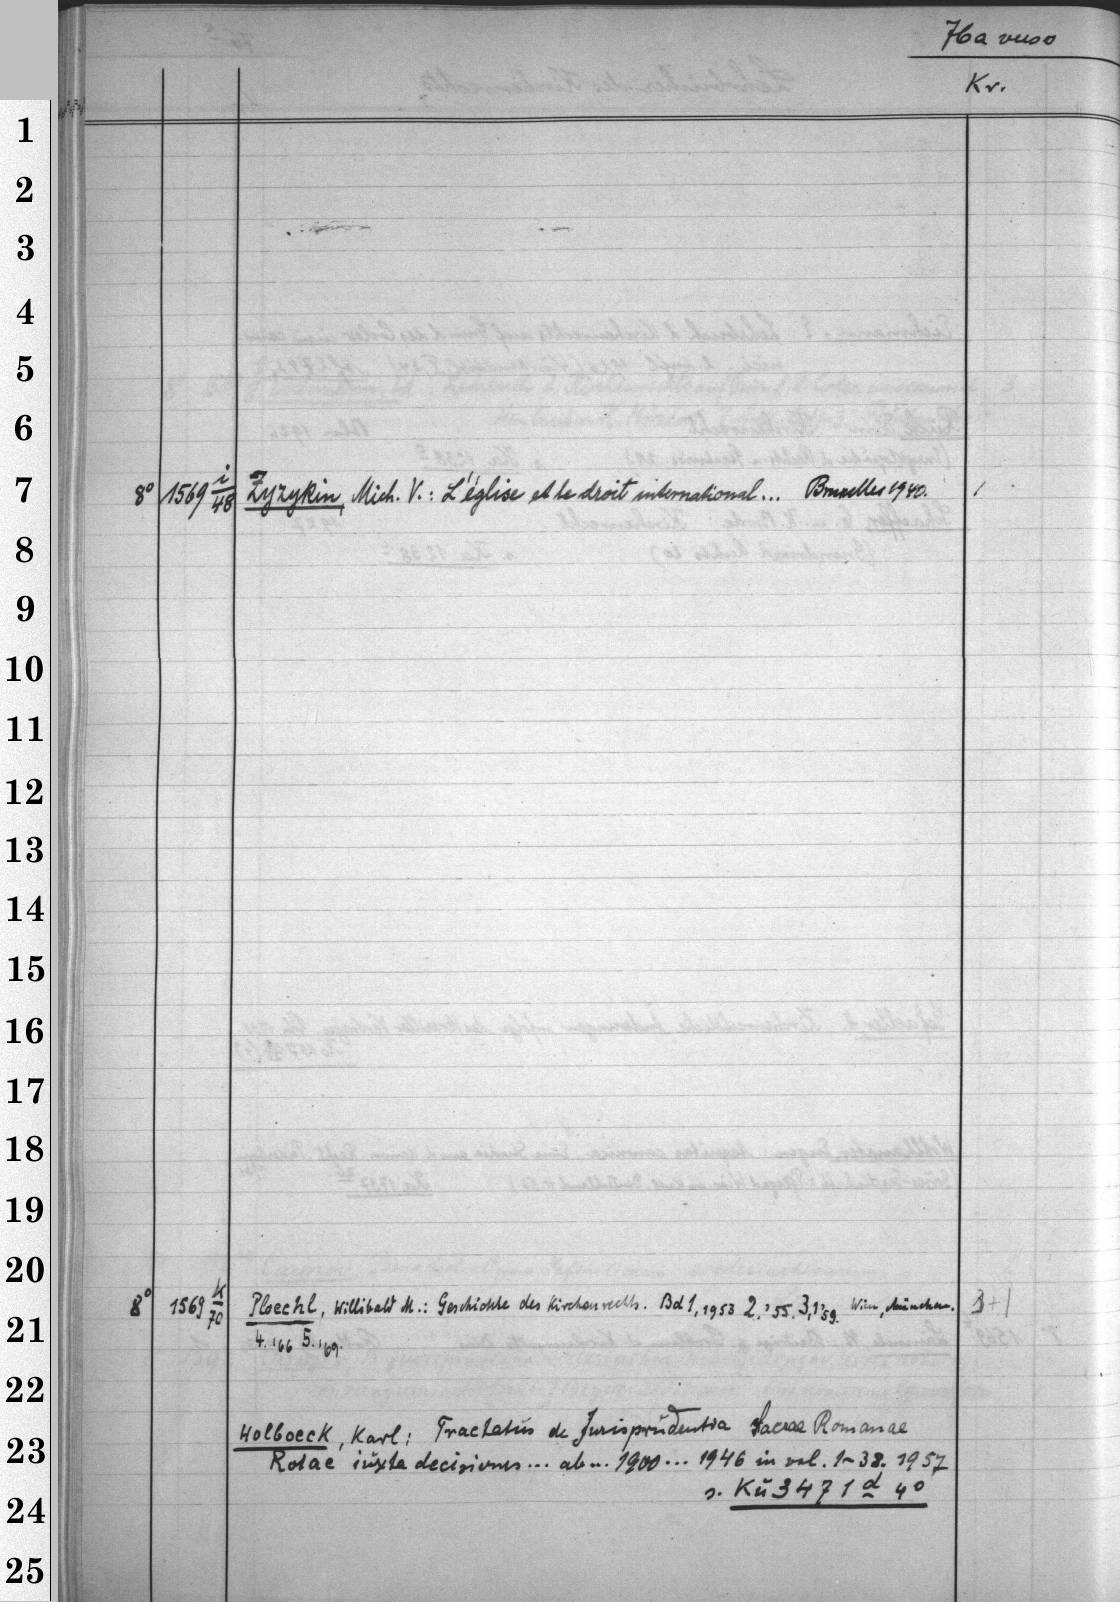 Ha verso
Kr.
1
2
3
4
5
6
7
8° 1569 i/48 Zyzykin, Mich. V.: L'église et le droit international... Bruxelles 1940. 1
8
9
10
11
12
13
14
15
16
17
18
19
20
8° 1569 k/70 Ploechl, Willibald M.: Geschichte des Kirchenrechts. Bd 1, 1953 2,'55. 3,1'59. Wien, München. 3+1
21
4.'66 5.'69.
22
Holboeck, Karl: Tractatus de Jurisprudentia Sacrae Romanae
23
Rotae iuxta decisiones... ab... 1900... 1946 in vol. 1-38. 1957
s. Kü 3471 d 4°
24
25